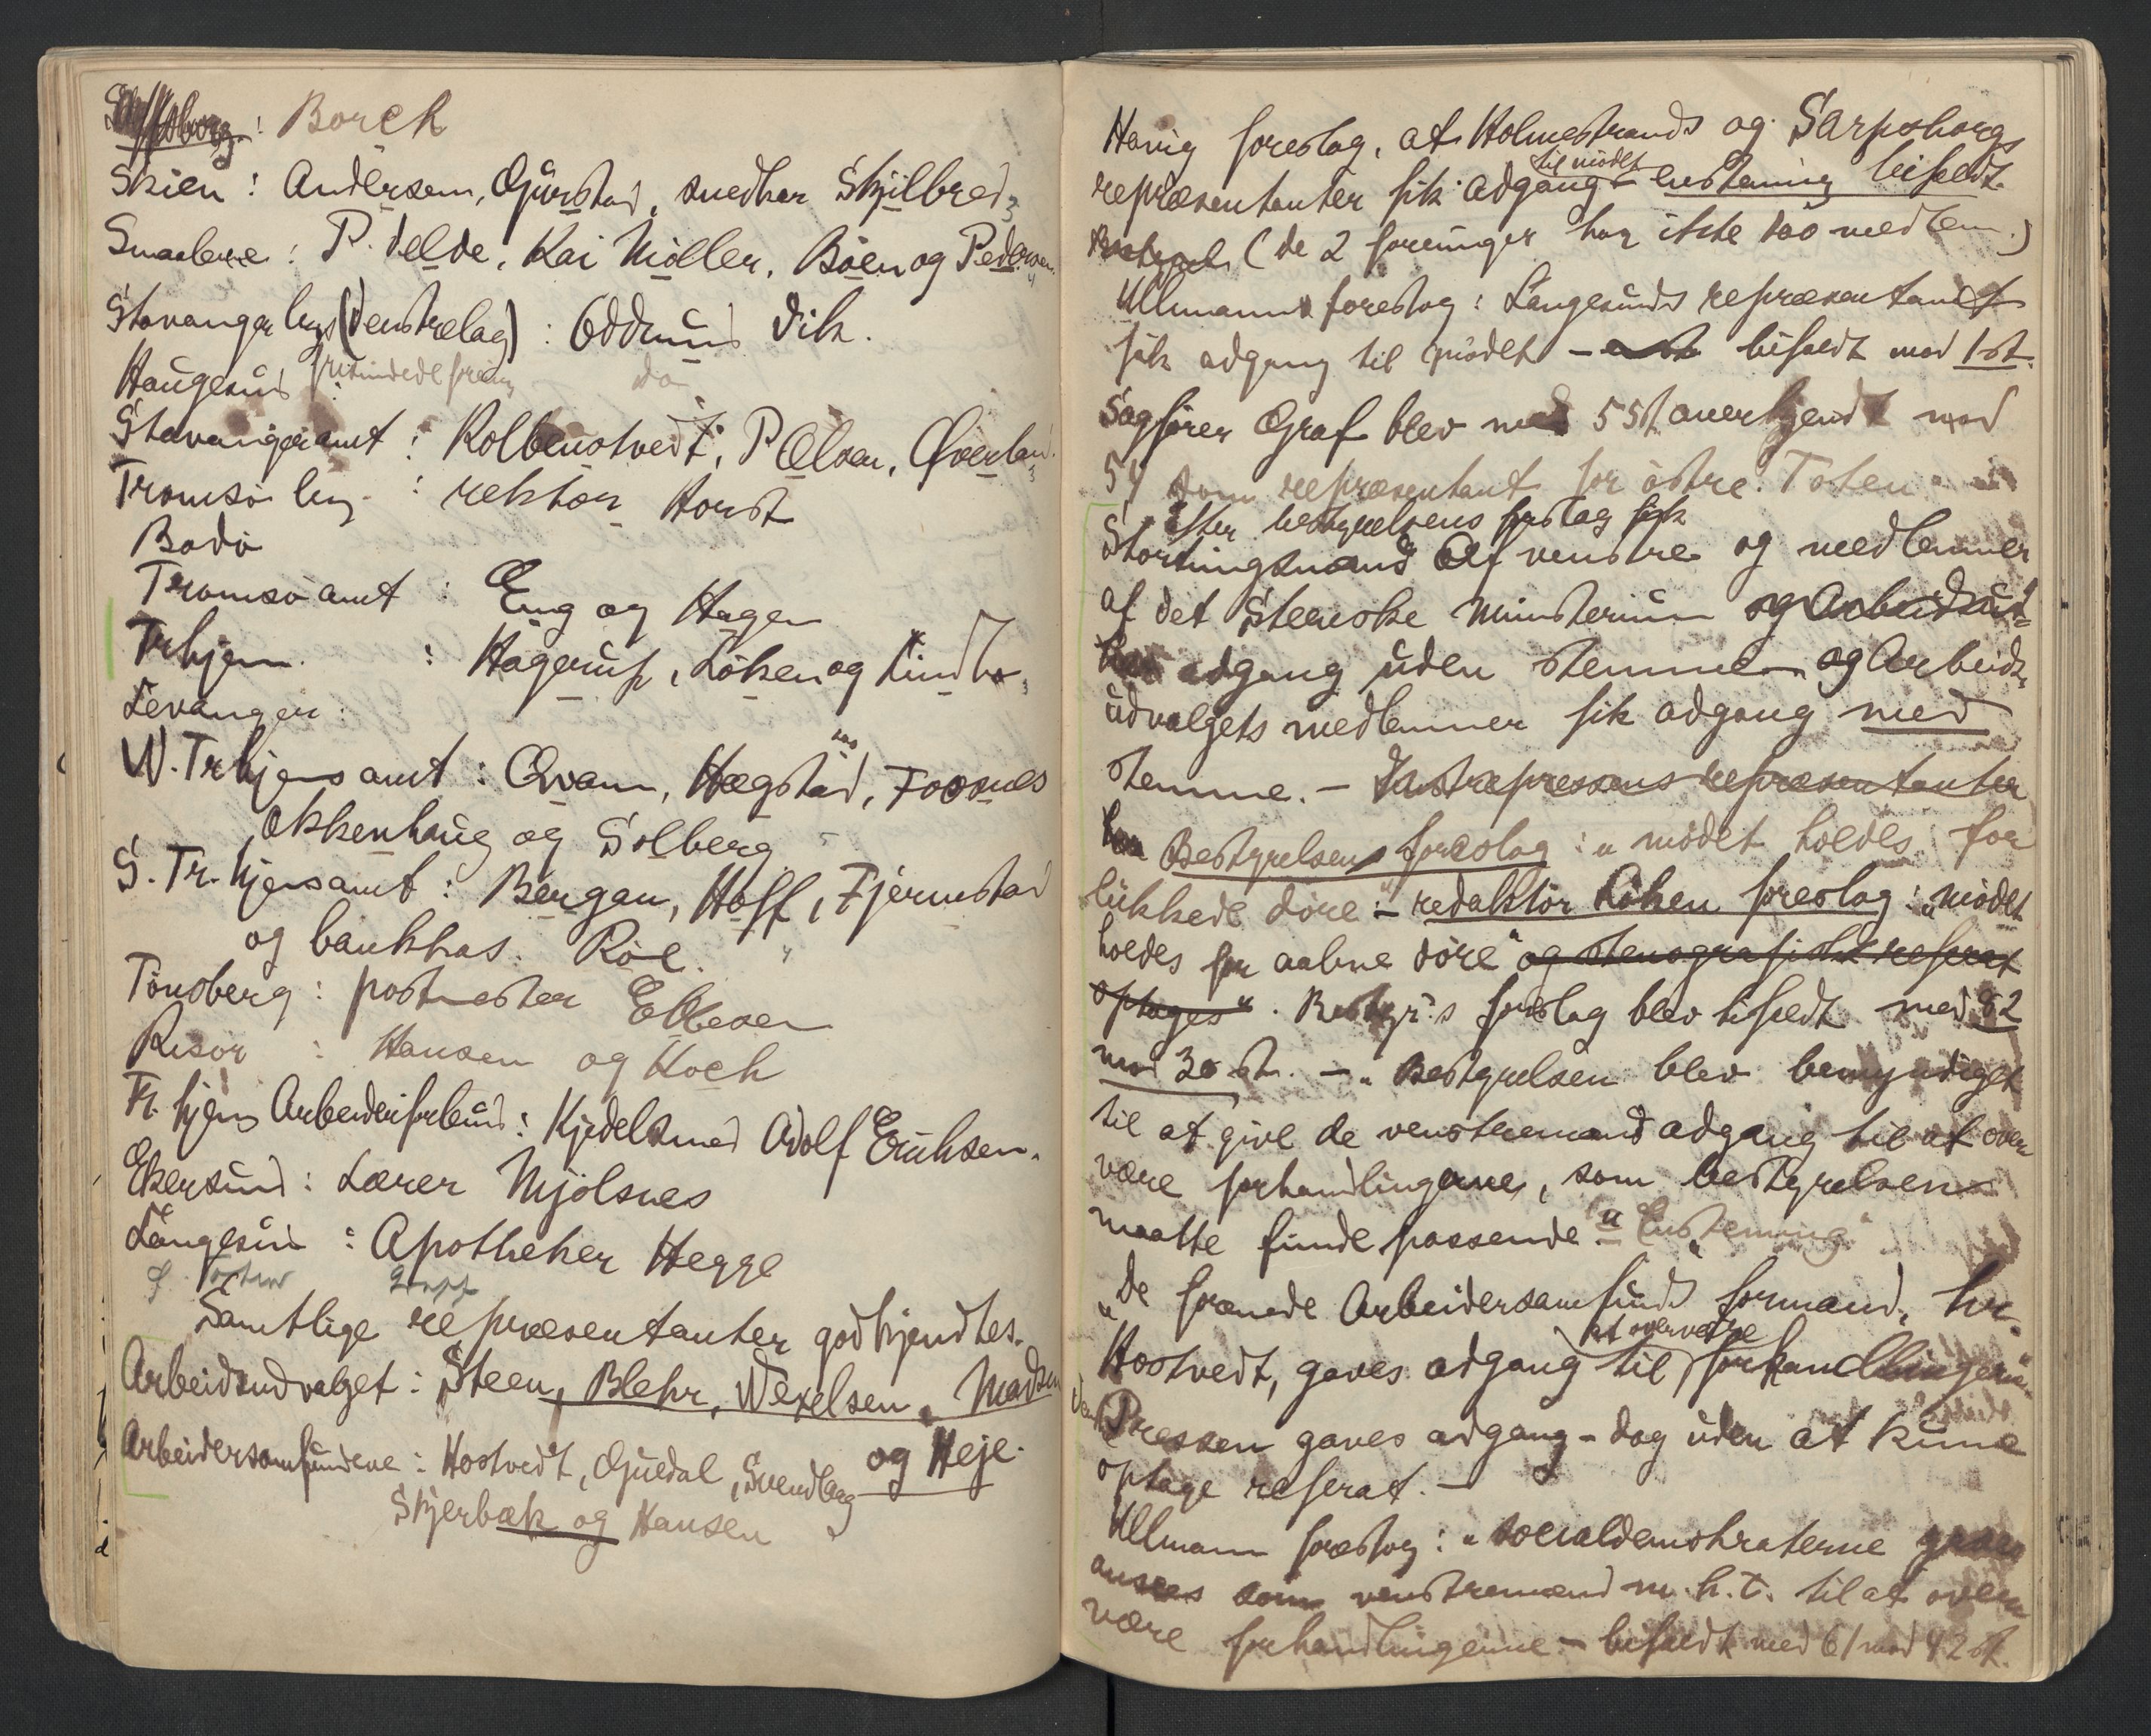 : Borch
Skien : Andersen, Gjürstad, snedker Skjilbred,
Smaalene : P. Velde, Kai Möller, Böen og Pedersen
Stavanger by (Venstrelag) : Oddmund Vik.
Haugesund frisindede foren — do
Stavanger amt : Kolbenstvedt, P Olsen, Øverland
Tromsö by : rektor Horst
Bodö
Tromsö amt : Eng og Hagen
Trhjem : Hagerup, Löken og Lindbo,
Levanger :
N. Trhjems amt : Qvam, Hægstad, Foosnæs
Okkenhaug og Solberg
S. Tr.hjems amt : Bergan, Hoff, Fjermstad
og bankkas. Röe.
Tönsberg : postmester Ebbesen
Risör : Hansen og Hoch
Tr.hjems Arbeiderforbund : Kjedelsmed Adolf Eriksen.
Ekersund : Lærer Mjölsnes
Langesund : Apotheker Hegge
Samtlige repræsentanter godkjendtes.
Arbeidsudvalget : Steen, Blehr, Wexelsen, Madsen
og Heje.
Arbeidersamfundene : Hostvedt, Gjuedal, Svendberg
Skjerbæk og Hansen
Havig foreslog, at Holmestrands og Sarpsborgs
repræsentanter fik adgang til mödet - enstemig bifaldt.
(de 2 foreninger har ikke 100 medlem.)
Ullmann foreslog : Langesunds repræsentant
fik adgang til mödet - bifaldt mod 1 st.
Sagförer Graf blev med 55 st anerkjendt mod
54 som repræsentant for östre Toten
Efter bestyrelsens forslag fik
Stortingsmænd af venstre og medlemmer
af det Steenske ministerium og Arbeidsud=
adgang uden stemme - og Arbeids,
udvalgets medlemmer fik adgang med
stemme. - Venstrepressens repræsentanter
Bestyrelsens foreslog : "mödet holdes for
lukkede döre" - redaktör Löken foreslog : "mödet
holdes for aabne döre" og stenografiske referat
optages". Bestyr's forslag blev bifaldt med 82
mod 30 st. - "Bestyrelsen blev bemyndiget
til at give de venstremænd adgang til at over
være forhandlingerne, som bestyrelsen
maatte finde passende" "Enstemig"
"De forenede Arbeidersamfunds formand, hr.
Hostvedt, gaves adgang til at overvære forhandlingerne
Pressen gaves adgang - dog uden at kunne
optage referat. -
Ullmann foreslog : "socialdemokraterne
ansees som venstremænd m. h. t. til at over
være forhandlingerne - bifaldt med 61 mod 42 st.